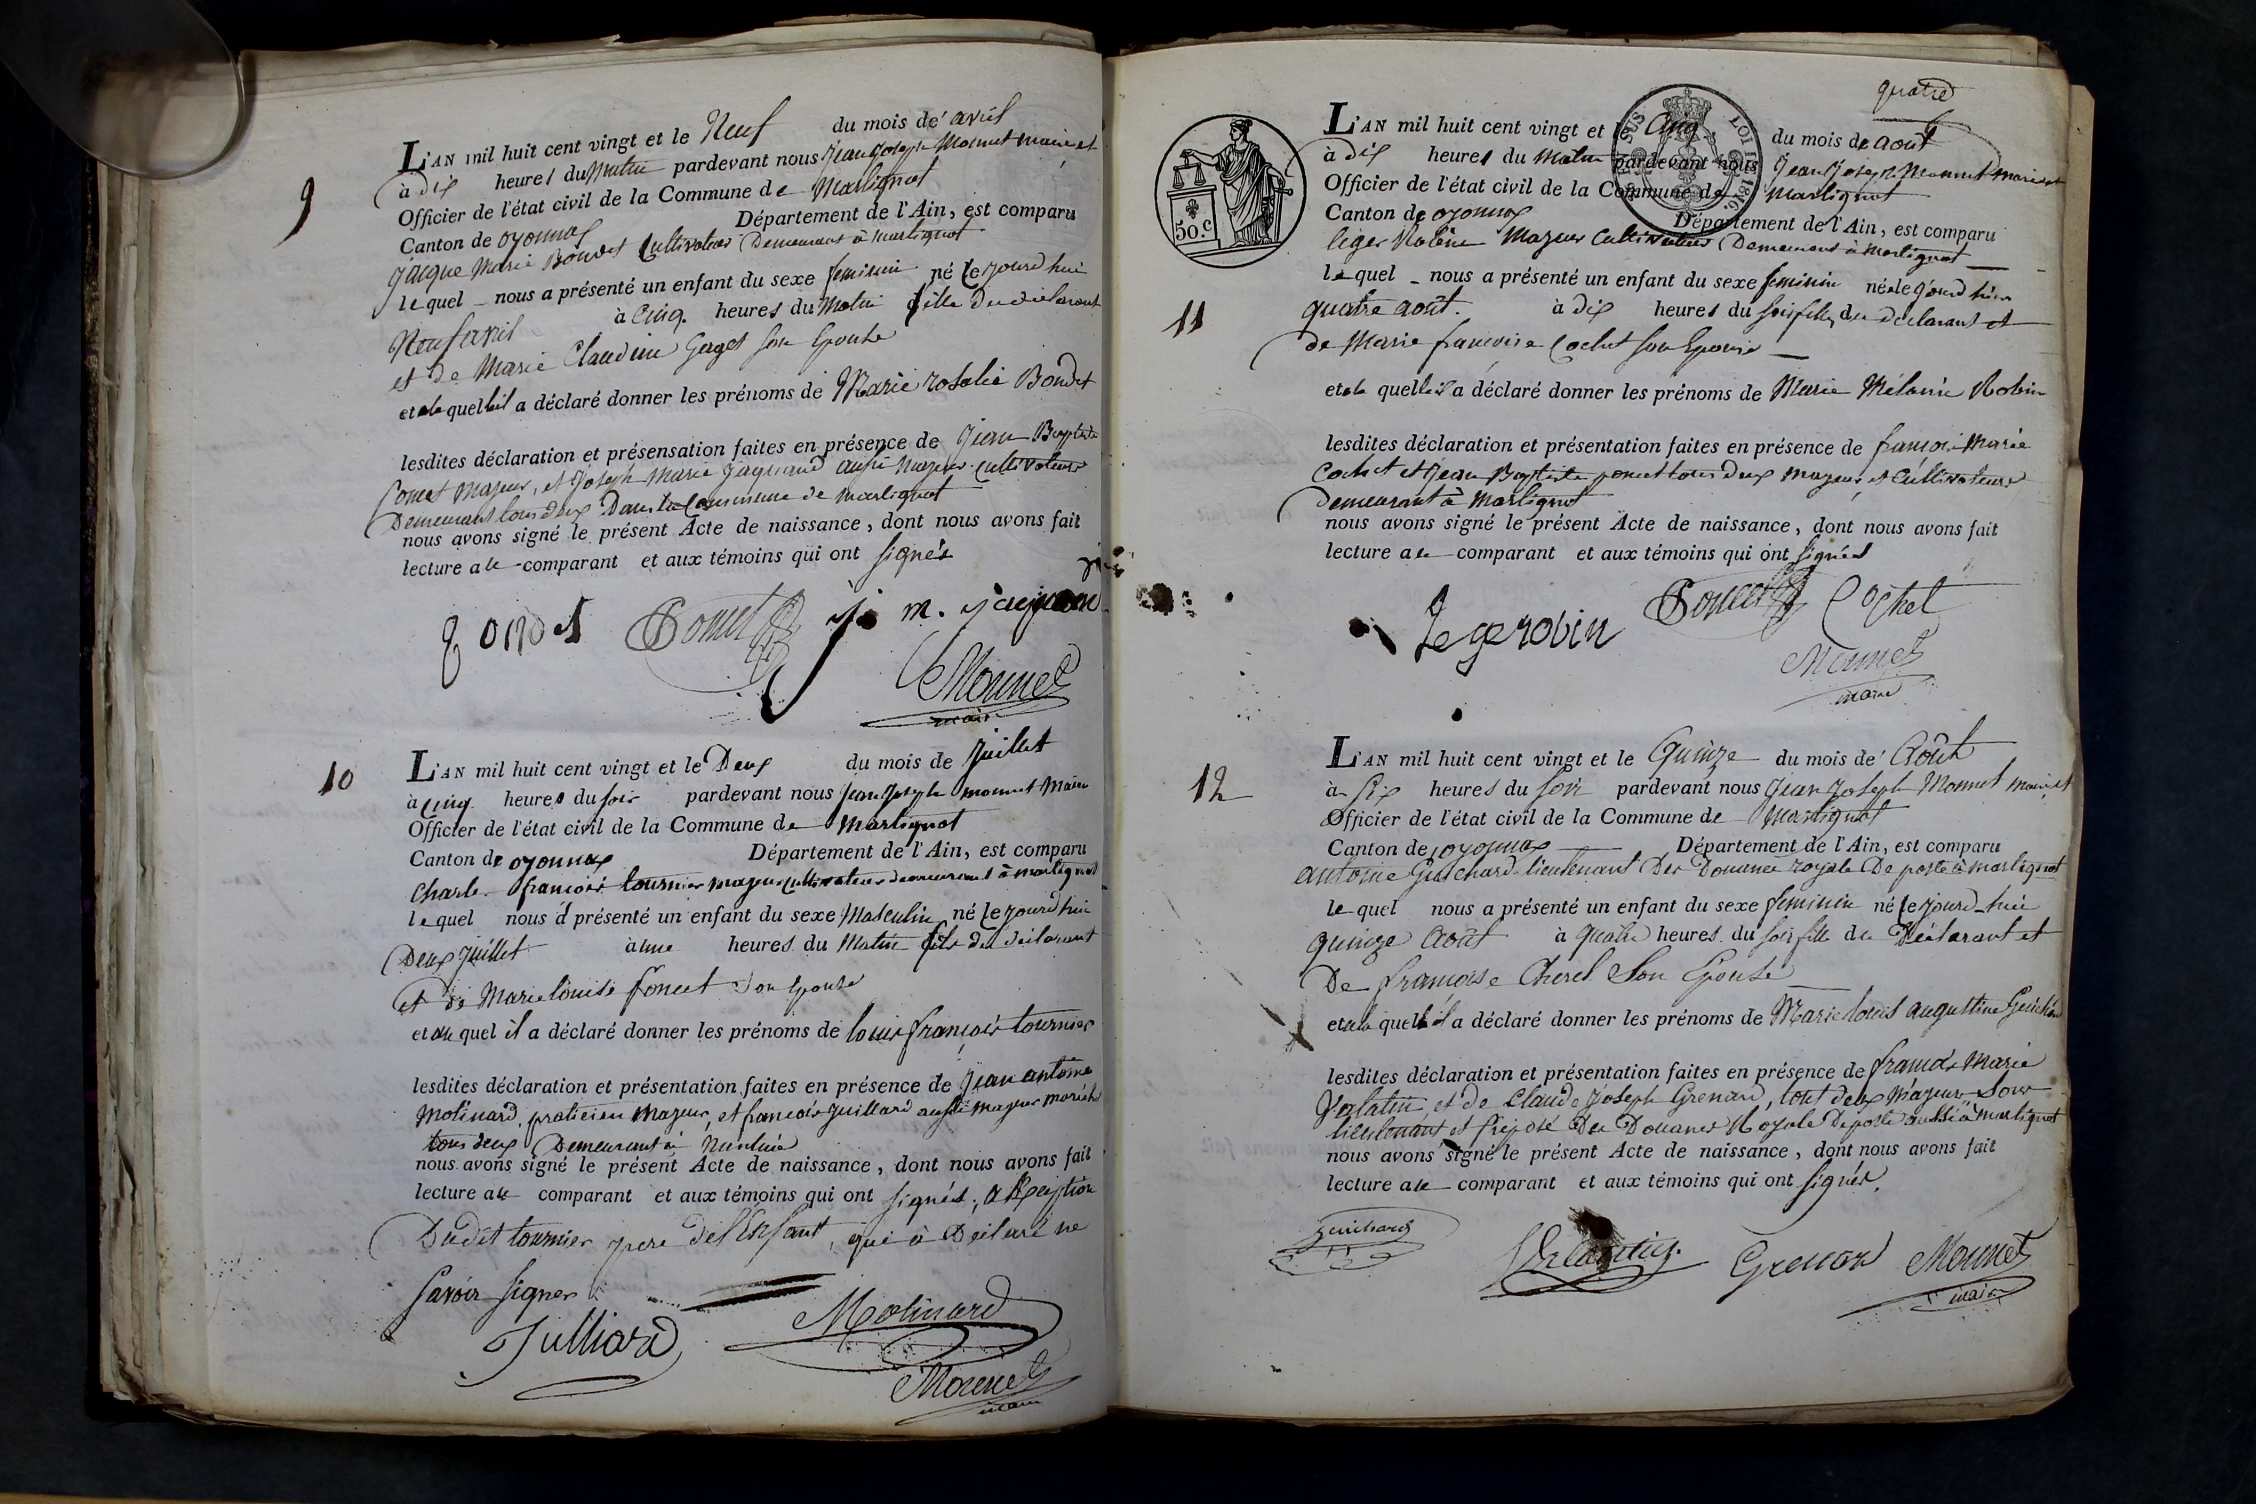 9
L'AN mil huit cent vingt et le Neuf du mois de avril
à dix heures du Matin pardevant nous Jean Joseph Monnet maire et
Officier de l'état civil de la Commune de Martignat
Canton de oyonnax Département de l'Ain, est comparu
Jacque Marie Bondet Cultivateur Demeurant à martignat
lequel nous a présenté un enfant du sexe feminin né le jourd'hui
Neuf avril à Cinq heures du Matin fille du déclarant
et de Marie Claudine Goyet son Epouse
et a la quelle il a déclaré donner les prénoms de Marie rosalie Bondet
lesdites déclaration et présensation faites en présence de Jean Baptiste
Poncet Majeur, et Joseph Marie Jagmand aussi Majeur Cultivateurs
Demeurant tous deux Dans la Commune de martignat
nous avons signé le présent Acte de naissance, dont nous avons fait
lecture a le comparant et aux témoins qui ont signés
Bondet Poncet j. m. jagmand
Monnet
maire
10
L'AN mil huit cent vingt et le Deux du mois de Juillet
à Cinq heures du soir pardevant nous Jean Joseph monnet Maire
Officier de l'état civil de la Commune de Martignat
Canton de oyonnax Département de l'Ain, est comparu
Charle françois tournier majeur Cultivateur demeurant à martignat
lequel nous a présenté un enfant du sexe Masculin né le jourd'hui
Deux Juillet à une heures du Matin fils du déclarant
et de Marie louise Poncet son Epouse
et au quel il a déclaré donner les prénoms de louis françois tournier
lesdites déclaration et présentation faites en présence de Jean antoine
Molinard, praticien majeur, et françois Juillard aussi majeur
tous deux Demeurant à Nantua
nous avons signé le présent Acte de naissance, dont nous avons fait
lecture a le comparant et aux témoins qui ont signés, a Exception
Dudit tournier pere de l'Enfant, qui à Déclaré ne
savoir signer
Julliard Molinard
Monnet
maire
quatre
SUS LOI DE 1816.
50.c
11
L'AN mil huit cent vingt et le Cinq du mois de août
à dix heures du matin pardevant nous Jean Joseph Monnet maire et
Officier de l'état civil de la Commune de Martignat
Canton de oyonnax Département de l'Ain, est comparu
léger Robin Majeur Cultivateur Demeurant à Martignat
lequel nous a présenté un enfant du sexe feminin né le jourd'hier
quatre août. à dix heures du soir fille du declarant et
de Marie françoise Cochet son Epouse
et a la quelle il a déclaré donner les prénoms de Marie Mélanie Robin
lesdites déclaration et présentation faites en présence de françois Marie
Cochet et Jean Baptiste poncet tous deux majeurs et Cultivateurs
demeurant à Martignat
nous avons signé le présent Acte de naissance, dont nous avons fait
lecture a le comparant et aux témoins qui ont signés
Legerobin Poncet Cochet
Monnet
maire
12
L'AN mil huit cent vingt et le Quinze du mois de Août
à Six heures du soir pardevant nous Jean Joseph Monnet maire et
Officier de l'état civil de la Commune de Martignat
Canton de oyonnax Département de l'Ain, est comparu
antoine Guichard lieutenant Des Douanes royale De poste à martignat
lequel nous a présenté un enfant du sexe feminin né le jourd-huie
quinze Août à quatre heures du soir fille du Déclarant et
De françoise Cherel Son Epouse
et a la quelle il a déclaré donner les prénoms de Marie louis augustine Guichard
lesdites déclaration et présentation faites en présence de françois Marie
Valatin, et de Claude Joseph Grenard, tout deux Majeurs Sous
lieutenant et préposé Des Douanes Royale De poste aussi à martignat
nous avons signé le présent Acte de naissance, dont nous avons fait
lecture a le comparant et aux témoins qui ont signés.
Guichard Grenard Monnet
maire